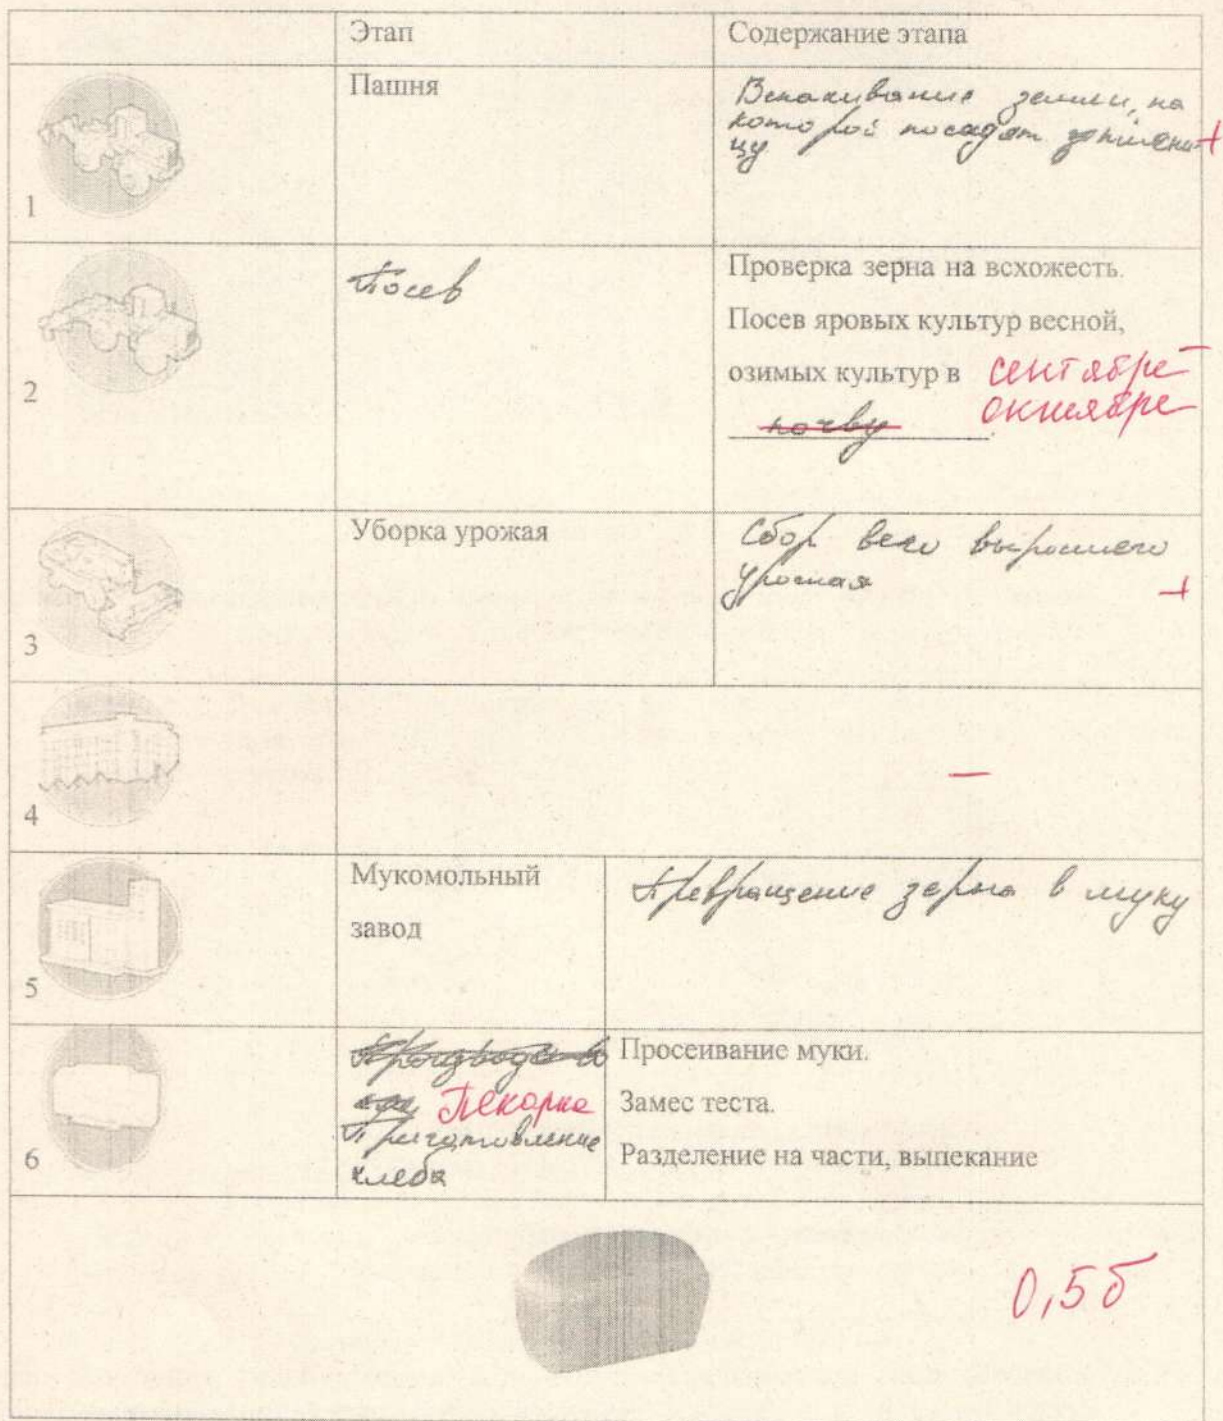 Этап Содержание этапа
1
Пашня
Вспахивание земли, на
которой посадят пшени-
цу +
2
Посев
Проверка зерна на всхожесть.
Посев яровых культур весной,
озимых культур в сентябре-
октябре
почву
3
Уборка урожая
Сбор всего выросшего
урожая +
4
–
5
Мукомольный
завод
Превращение зерна в муку
6
Производство
Пекарня
Приготовление
хлеба
Просеивание муки.
Замес теста.
Разделение на части, выпекание
0,5б